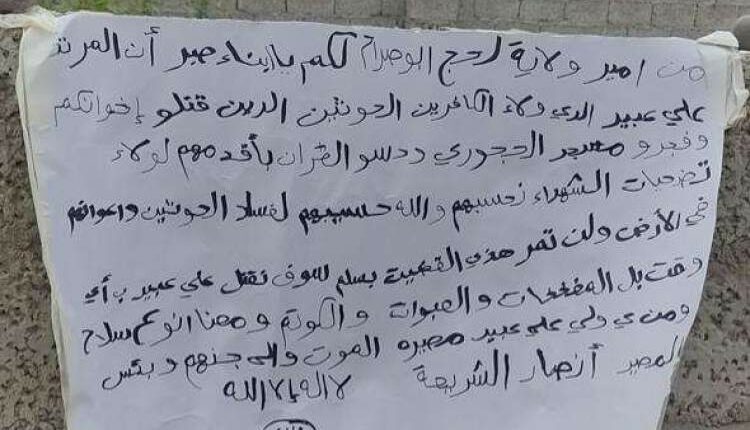 من امير ولاية لحج ابو صرام لكم يا ابناء صبر أن المرتد
علي عبيد الدي ولاء الكافرين الحوثين الدين قتلو إخوانكم
وفجرو مسجد الحجوري ودسو القران بأقدمهم لولاء
تضحيات الشهداء نحسبهم والله حسيبهم لفساد الحوثين واعوانهم
في الأرض ولن تمر هذي القضيت بسلم لسوف نقتل علي عبيد بأي
وقت بل المفخخات والعبوات والكوتم ومعنا انوعم سلاح
ومن ولي علي عبيد مصيره الموت والى جنهم وبئس
المصير أنصار الشريعة لا اله إلا الله